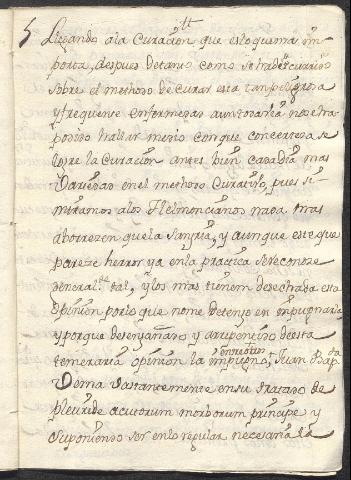 tt
Llegando ala Curación que eslo que mas im
porta, despues detanto como se tra discurrido
sobre el methodo de curar esta tan peligrosa
y frequense enfermedad aun todavia no se tra
podido hallar medio con que concertesa se
logre la Curación antes bien cada dia mas
Variedad en el methodo Curativo, pues si
miramos alos Helmoncianos nada mas
aborrezen quela Sangria, y aunque este que
pareze herror ya enla practica se reconoze
general.te tal, y los mas tienen desechada esta
Opinion porlo que nome detengo en inpugnarla
y porque desengañado y arrepentido de esta
temeraria opinion la impugno con otros Juan Bap.ta
Doma Vastantemente en su tratado de
pleuride acutorum morborum principe y
Suponiendo ser enlo regular necesaria la